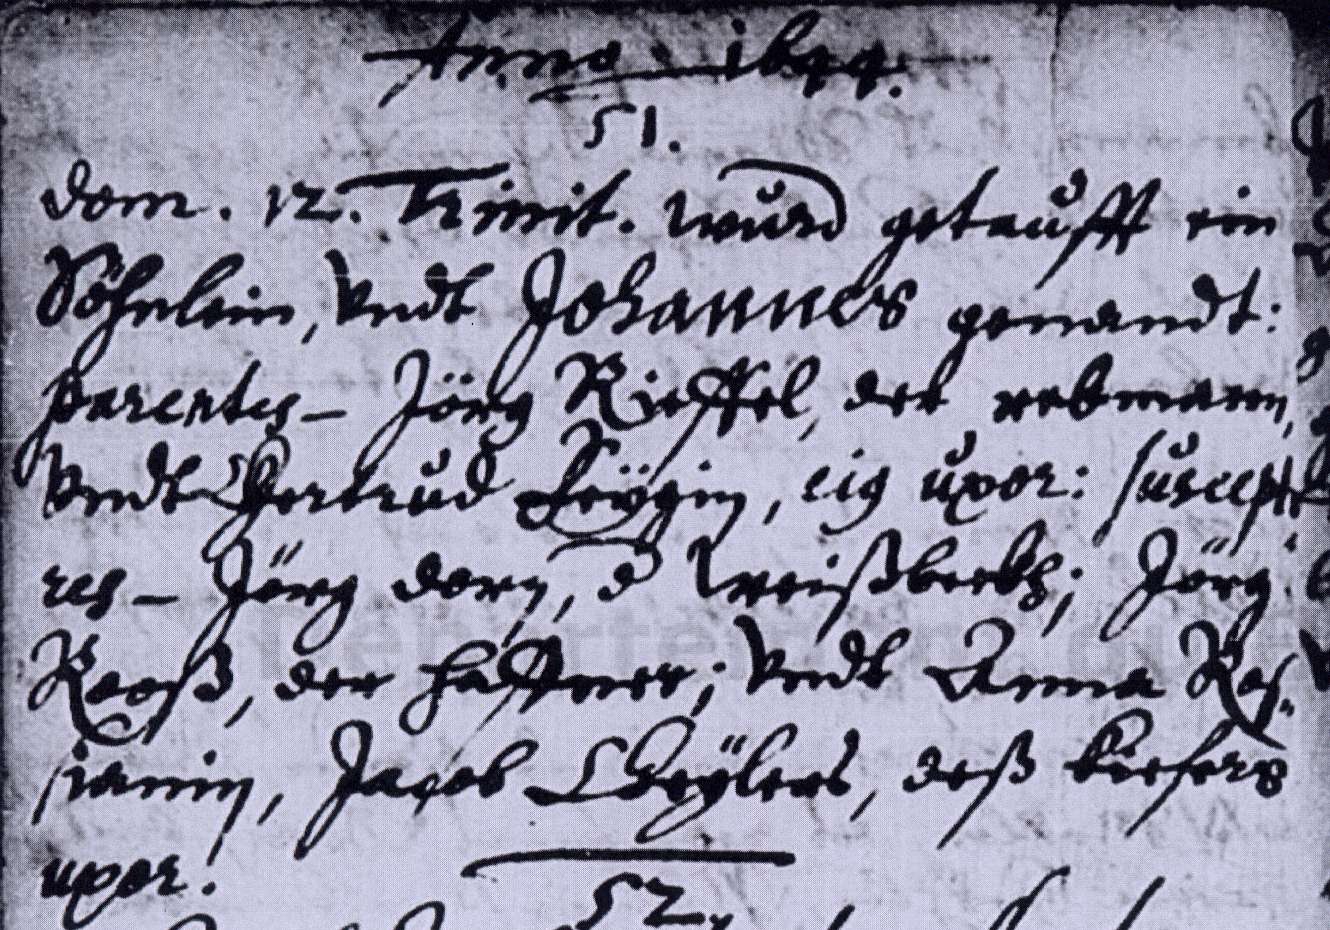 Anno 1644.
51.
Dom. 12. Trinit. wurd getaufft ein
Söhnlein, Vndt Johannes genandt:
parentes – Jörg Rieffel, der rebmann,
Vndt Gertrud eig uxor: suscepto
res – Jörg dorn, d Weißbeckh; Jörg
Rooß, der haffner; Vndt Anna Ros,,
sianin, Jacob Beÿlers, deß kiefers
uxor.
52.